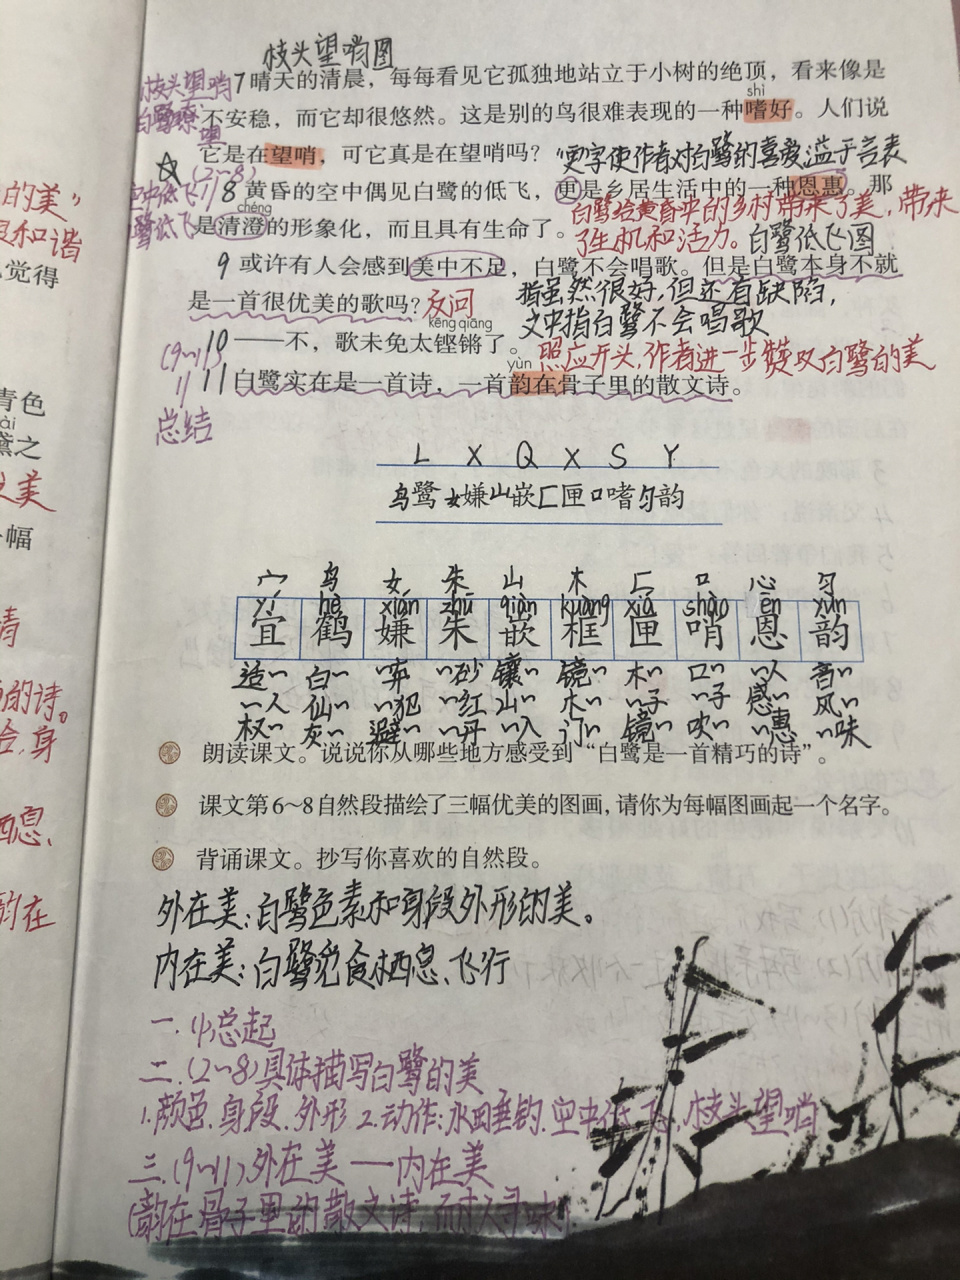 枝头望哨图
枝头望哨
白鹭瞭望
7 晴天的清晨，每每看见它孤独地站立于小树的绝顶，看来像是
shì
不安稳，而它却很悠然。这是别的鸟很难表现的一种嗜好。人们说
它是在望哨，可它真是在望哨吗？
"更"字使作者对白鹭的喜爱溢于言表
(2~8)
空中低飞
鹭低飞
8 黄昏的空中偶见白鹭的低飞，更是乡居生活中的一种恩惠。那
chéng
是清澄的形象化，而且具有生命了。
白鹭给黄昏中的乡村带来了美，带来
了生机和活力。白鹭低飞图
9 或许有人会感到美中不足，白鹭不会唱歌。但是白鹭本身不就
是一首很优美的歌吗？反问
指虽然很好,但还有缺陷，
文中指白鹭不会唱歌
kēng qiāng
10 ——不，歌未免太铿锵了。
照应开头,作者进一步赞叹白鹭的美
yùn
(9~11)
11 白鹭实在是一首诗，一首韵在骨子里的散文诗。
总结
L X Q X S Y
鸟鹭 女嫌 山嵌 匚匣 口嗜 匀韵
宀 鸟 女 朱 山 木 匚 口 心 匀
yí hè xián zhū qiàn kuàng xiá shào ēn yùn
宜 鹤 嫌 朱 嵌 框 匣 哨 恩 韵
适~ 白~ ~弃 ~砂 镶~ 镜~ 木~ 口~ ~人 音~
~人 仙~ ~犯 ~红 山~ 木~ ~子 ~子 感~ 风~
权~ 灰~ 避~ ~丹 ~入 门~ 镜~ 吹~ ~惠 ~味
朗读课文。说说你从哪些地方感受到“白鹭是一首精巧的诗”。
课文第6～8自然段描绘了三幅优美的图画，请你为每幅图画起一个名字。
背诵课文。抄写你喜欢的自然段。
外在美:白鹭色素和身段外形的美。
内在美:白鹭觅食、栖息、飞行
一.(1)总起
二.(2~8)具体描写白鹭的美
1.颜色.身段.外形 2.动作:水田垂钓.空中低飞.枝头望哨
三.(9~11)外在美——内在美
(韵在骨子里的散文诗,耐人寻味)
的美”
和谐
觉得
青色
ài
黛之
美
幅
清
的诗。
身
栖息、
韵在